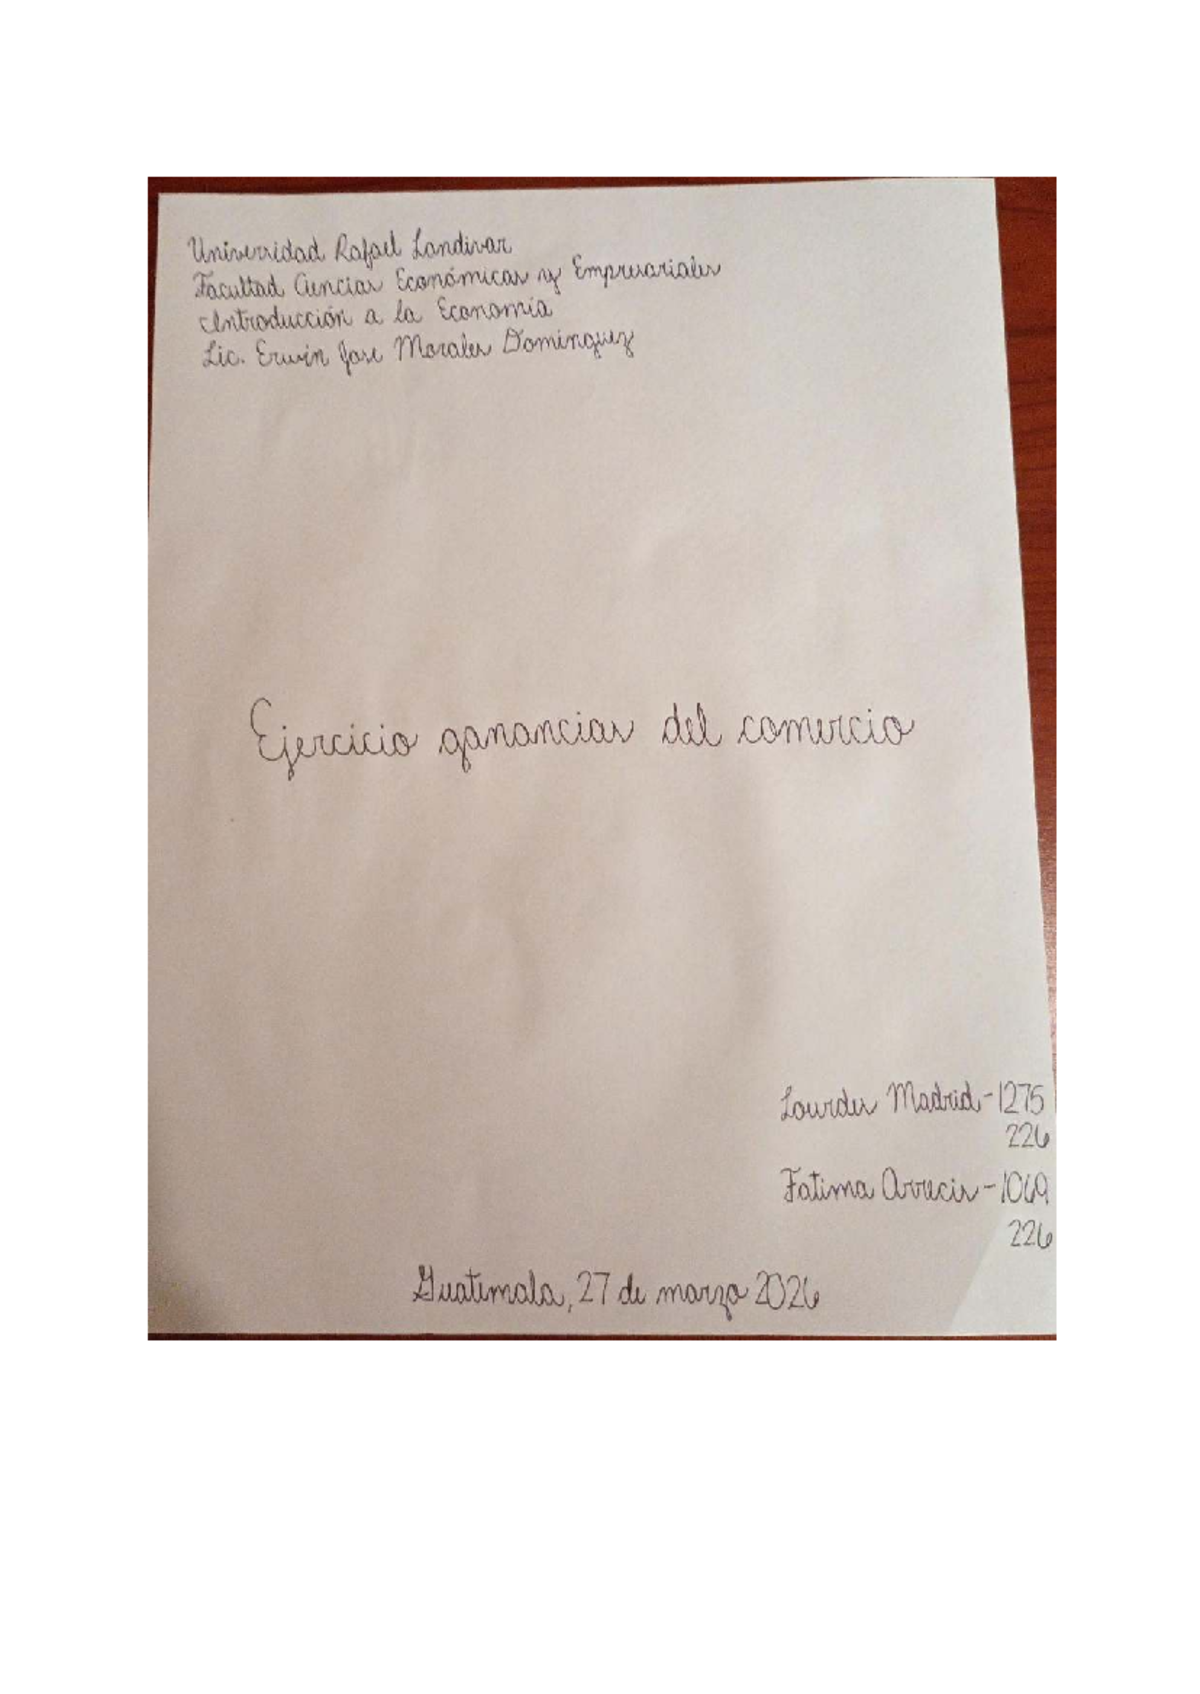 Universidad Rafael Landivar
Facultad Ciencias Económicas y Empresariales
Introducción a la Economía
Lic. Erwin Jose Morales Dominguez
Ejercicio ganancias del comercio
Lourdes Madrid-1275
226
Fatima Arrecis-1069
226
Guatemala, 27 de marzo 2026